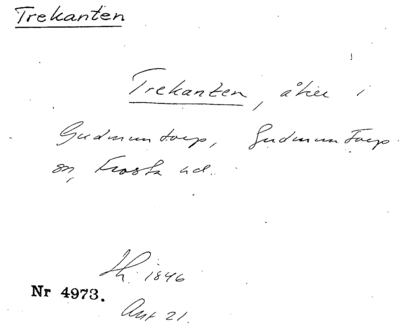 Trekanten
Trekanten, åker i
Gudmuntorp, Gudmuntorp
sn, Frosta hd.
Lh. 1846
Nr 4973.
Akt 21.